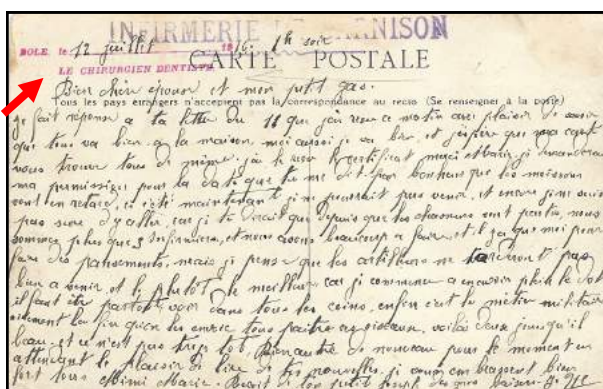 INFIRMERIE DE GARNISON
DOLE, le 12 juillet 1916 1h soir
CARTE POSTALE
LE CHIRURGIEN DENTISTE
Bien chère épouse et mon ptit gas.
Tous les pays étrangers n'acceptent pas la correspondance au recto (Se renseigner à la poste)
je fait réponse a ta lettre du 11 que jai reçu ce matin avec plaisir de savoir
que tous va bien a la maison, moi aussi je va bien et j'espère que ma carte
vous trouve tous de même, jai le certificat merci Marie, je demanderai
ma permission pour la date que tu me dit par bonheur que les moissons
sont en retard, si cété maintenant je ne pourrait pas venir, et encore je ne suis
pas sure dy aller, car je te dirait que depuis que les chasseurs sont partie, nous
sommes plus que 3 Infirmiers, et nous avons beaucoup a faire, et il y a que moi pour
faire des pansements, mais je pense que les artilleurs ne tarderont pas
bien a venir et le plutôt le meilleur car je commence a en avoir plein le dos
il faut être partout, voir dans tous les coins, enfin cest le métier militaire
vivement la fin quon les envoie tous paitre voilà deux jours qu'il
beau et ce n'est pas trop tôt, Rien autre de nouveau pour le moment en
attendant le plaisir de lire de tes nouvelles, je vous embrassent bien
fort tous Mimi Marie. ton petit